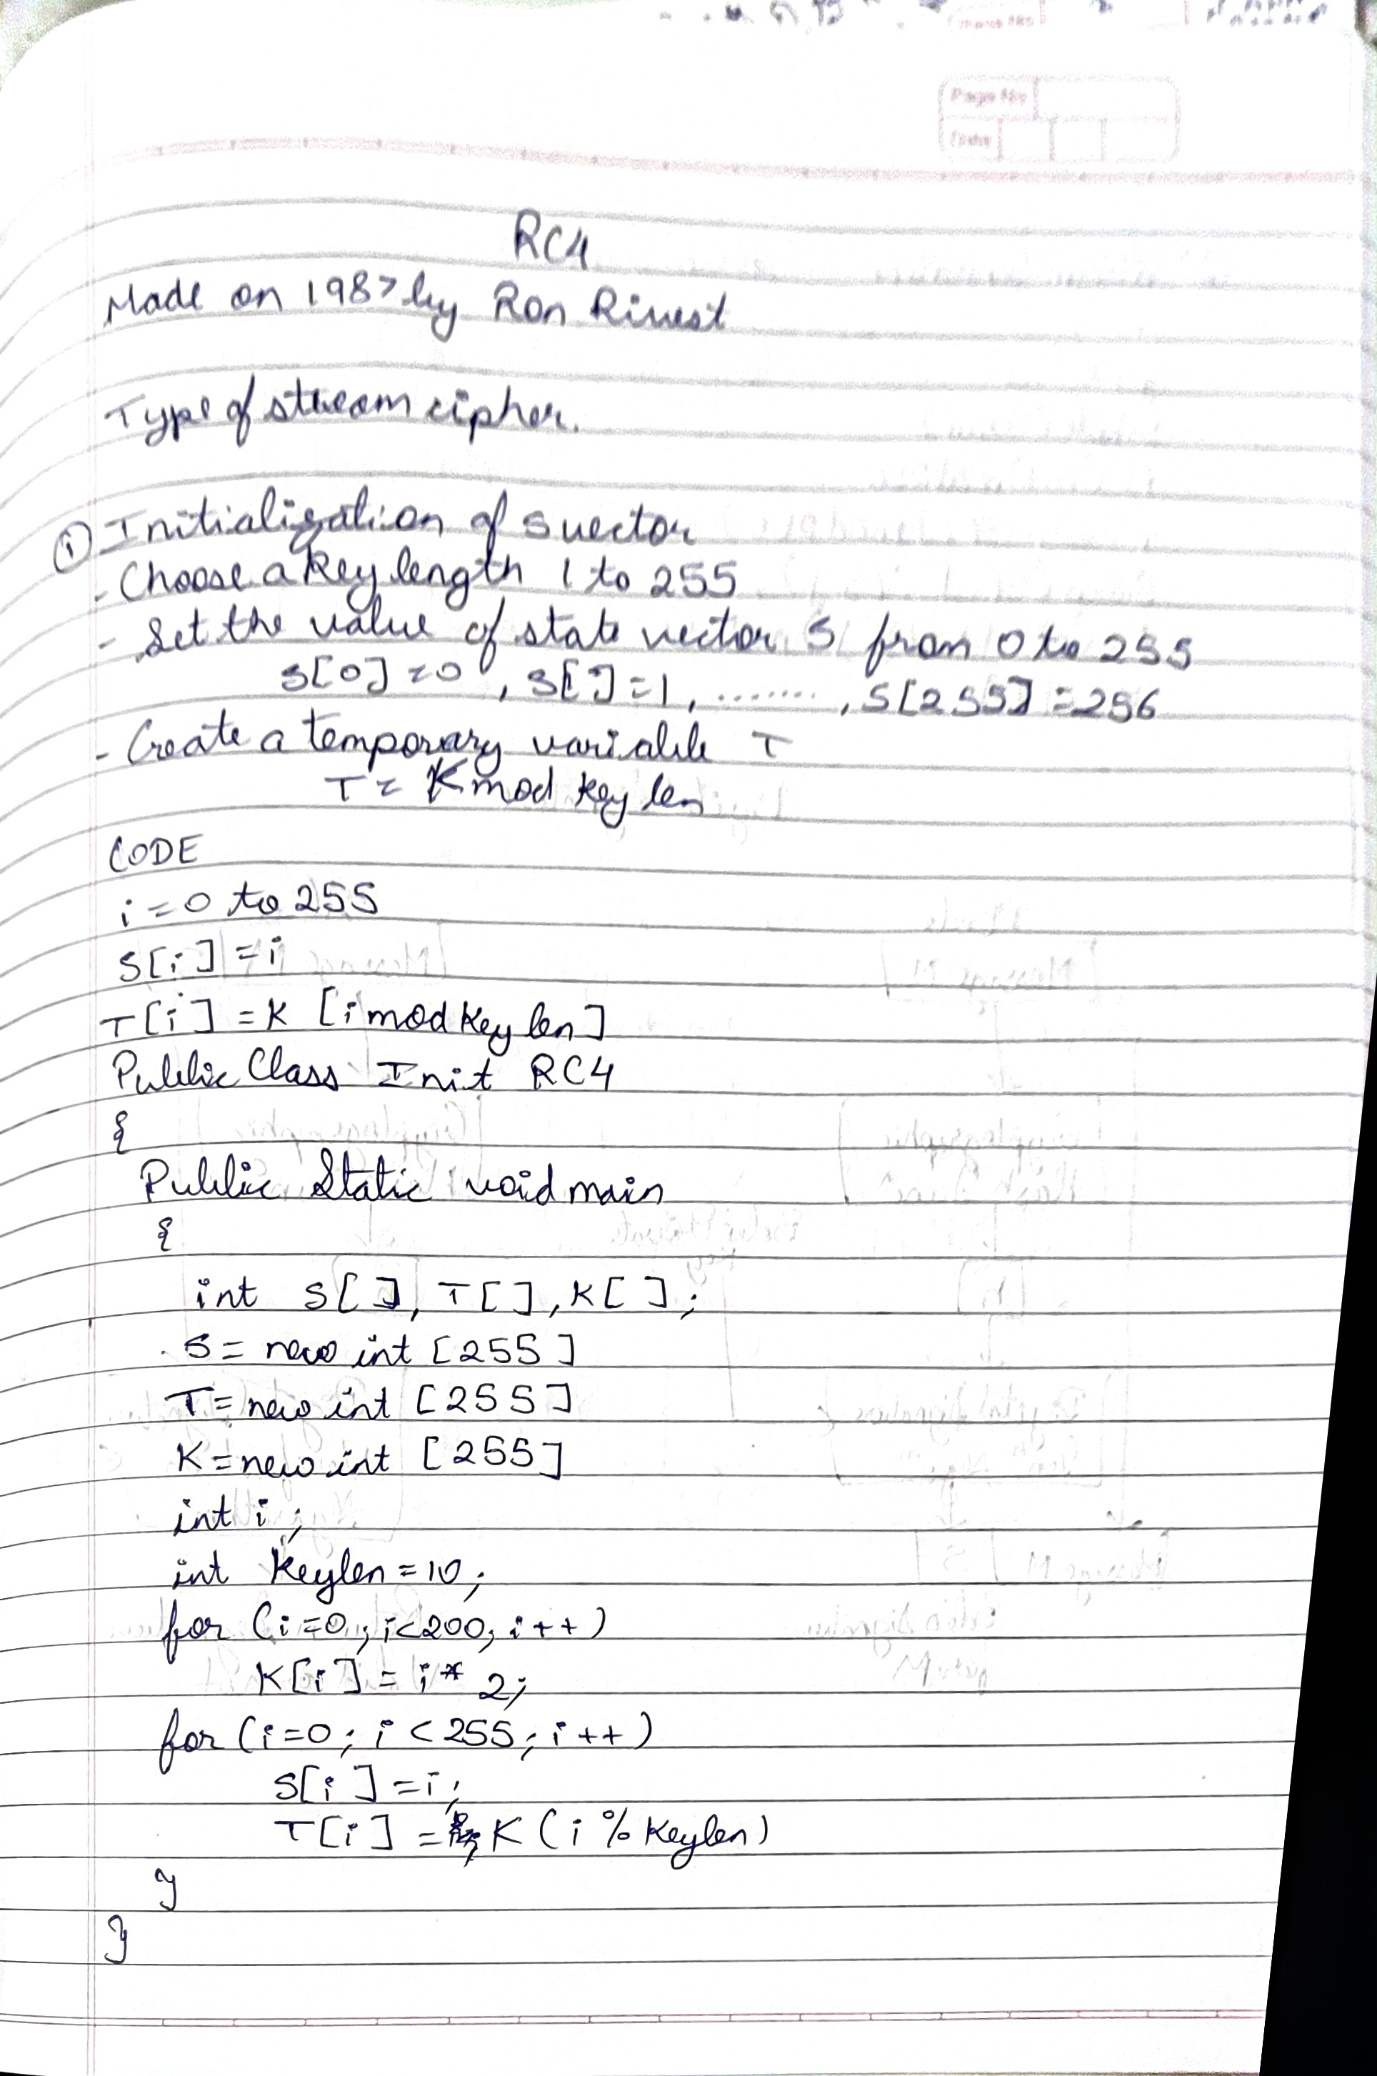 Page No
Date
RC4
Made on 1987 by Ron Rivest
Type of stream cipher.
① Initialization of S vector
- Choose a key length 1 to 255
- Set the value of state vector S from 0 to 255
S[0] = 0, S[]=1, ......., S[255] = 256
- Create a temporary variable T
T = K mod key len
CODE
i = 0 to 255
S[i] = i
T[i] = K [i mod Key len]
Public Class Init RC4
{
Public Static void main
{
int S[], T[], K[];
S = new int [255]
T = new int [255]
K = new int [255]
int i;
int Keylen = 10;
for (i=0; i<200; i++)
K[i] = i * 2;
for (i=0; i < 255; i++)
S[i] = i;
T[i] = K (i % Keylen)
}
}